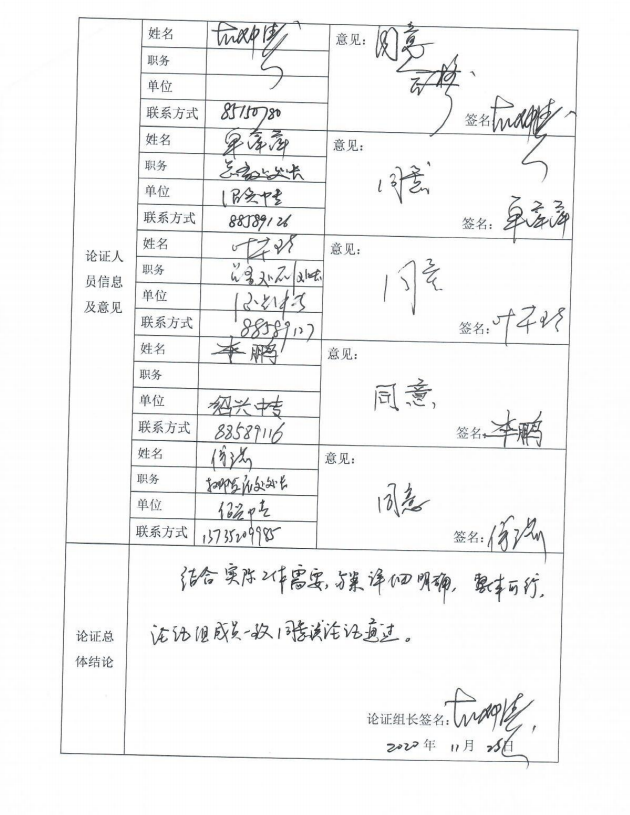 姓名
职务
单位
联系方式 85150780
意见：同意
签名：
姓名 单萍萍
职务
单位 绍兴中专
联系方式 88589126
意见：
同意
签名：单萍萍
论证人
员信息
及意见
姓名
职务
单位 绍兴中专
联系方式 88589127
意见：
同意
签名：
姓名 李鹏
职务
单位 绍兴中专
联系方式 88589116
意见：
同意，
签名：李鹏
姓名
职务
单位 绍兴中专
联系方式 13735209985
意见：
同意
签名：
论证总
体结论
结合实际工作需要，方案详细明确，基本可行，
论证组成员一致同意该论证通过。
论证组长签名：
2020年 11月 25日